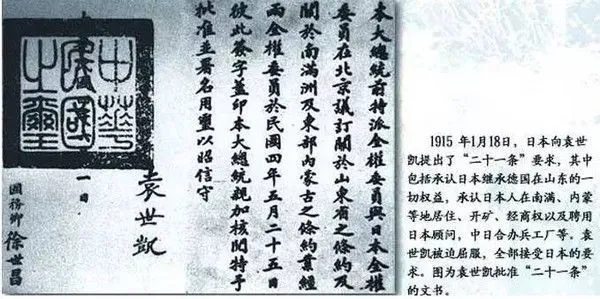 本大總統前特派全權委員與日本全權
委員在北京議訂關於山東省之條約及
關於南滿洲及東部內蒙古之條約業經
兩全權委員於民國四年五月二十五日
彼此簽字蓋印本大總統親加核閱特予
批准並署名用璽以昭信守
袁世凱
中華民國之璽
一日
國務卿徐世昌
1915 年1月18日，日本向袁世
凯提出了“二十一条”要求，其中
包括承认日本继承德国在山东的一
切权益，承认日本人在南满、内蒙
等地居住、开矿、经商权以及聘用
日本顾问，中日合办兵工厂等。袁
世凯被迫屈服，全部接受日本的要
求。图为袁世凯批准“二十一条”
的文书。